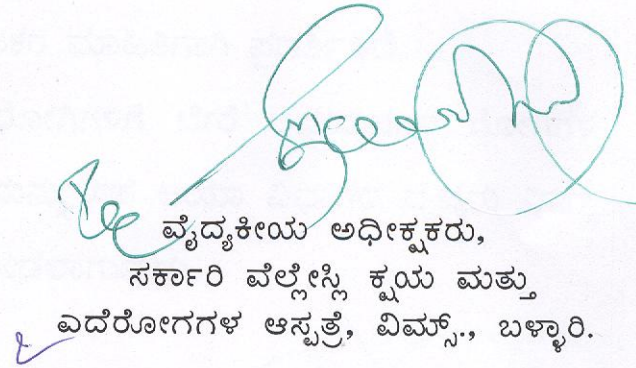 ವೈದ್ಯಕೀಯ ಅಧೀಕ್ಷಕರು,
ಸರ್ಕಾರಿ ವೆಲ್ಲೇಸ್ಲಿ ಕ್ಷಯ ಮತ್ತು
ಎದೆರೋಗಗಳ ಆಸ್ಪತ್ರೆ, ವಿಮ್ಸ್., ಬಳ್ಳಾರಿ.